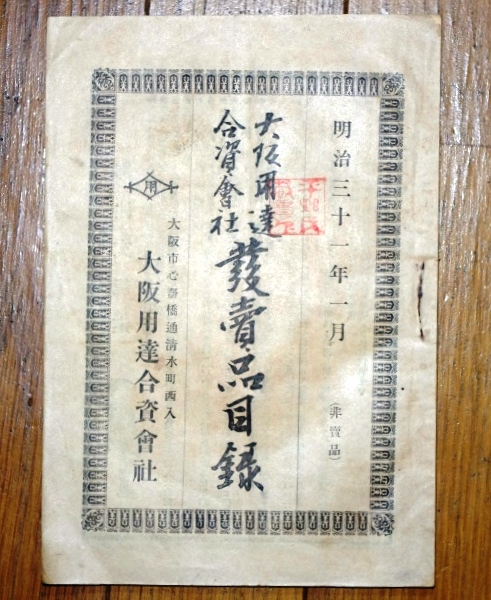 明治三十一年一月
(非賣品)
大阪用達
合資會社
發賣品目録
大阪市心斎橋通清水町西入
用
大阪用達合資會社